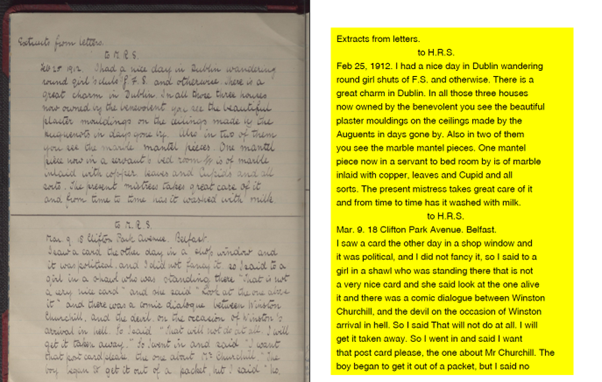 Extracts from letters.
to M.R.S.
Feb 25 1912. I had a nice day in Dublin wandering
round girl's clubs G.F.S. and otherwise. There is a
great charm in Dublin. In all those three houses
now owned by the benevolent you see the beautiful
plaster mouldings on the ceilings made by the
Huguenots in days gone by. Also in two of them
you see the marble mantel pieces. One mantel
piece now in a servant's bed room is of marble
inlaid with copper, leaves and Cupids and all
sorts. The present mistress takes great care of it
and from time to time has it washed with milk.
to M.R.S.
Mar. 9. 18 Clifton Park Avenue. Belfast.
I saw a card the other day in a shop window and
it was political, and I did not fancy it, so I said to a
girl in a shawl who was standing there "That is not
a very nice card" and she said "Look at the one above
it" and there was a comic dialogue between Winston
Churchill, and the devil, on the occasion of Winston's
arrival in hell. So I said "That will not do at all. I will
get it taken away." So I went in and said "I want
that post card please, the one about Mr Churchill." The
boy began to get it out of a packet, but I said "No,
Extracts from letters.
to H.R.S.
Feb 25, 1912. I had a nice day in Dublin wandering
round girl shuts of F.S. and otherwise. There is a
great charm in Dublin. In all those three houses
now owned by the benevolent you see the beautiful
plaster mouldings on the ceilings made by the
Auguents in days gone by. Also in two of them
you see the marble mantel pieces. One mantel
piece now in a servant to bed room by is of marble
inlaid with copper, leaves and Cupid and all
sorts. The present mistress takes great care of it
and from time to time has it washed with milk.
to H.R.S.
Mar. 9. 18 Clifton Park Avenue. Belfast.
I saw a card the other day in a shop window and
it was political, and I did not fancy it, so I said to a
girl in a shawl who was standing there that is not
a very nice card and she said look at the one alive
it and there was a comic dialogue between Winston
Churchill, and the devil on the occasion of Winster
arrival in hell. So I said That will not do at all. I will
get it taken away. So I went in and said I want
that post card please, the one about Mr Churchill. The
boy began to get it out of a packet, but I said no